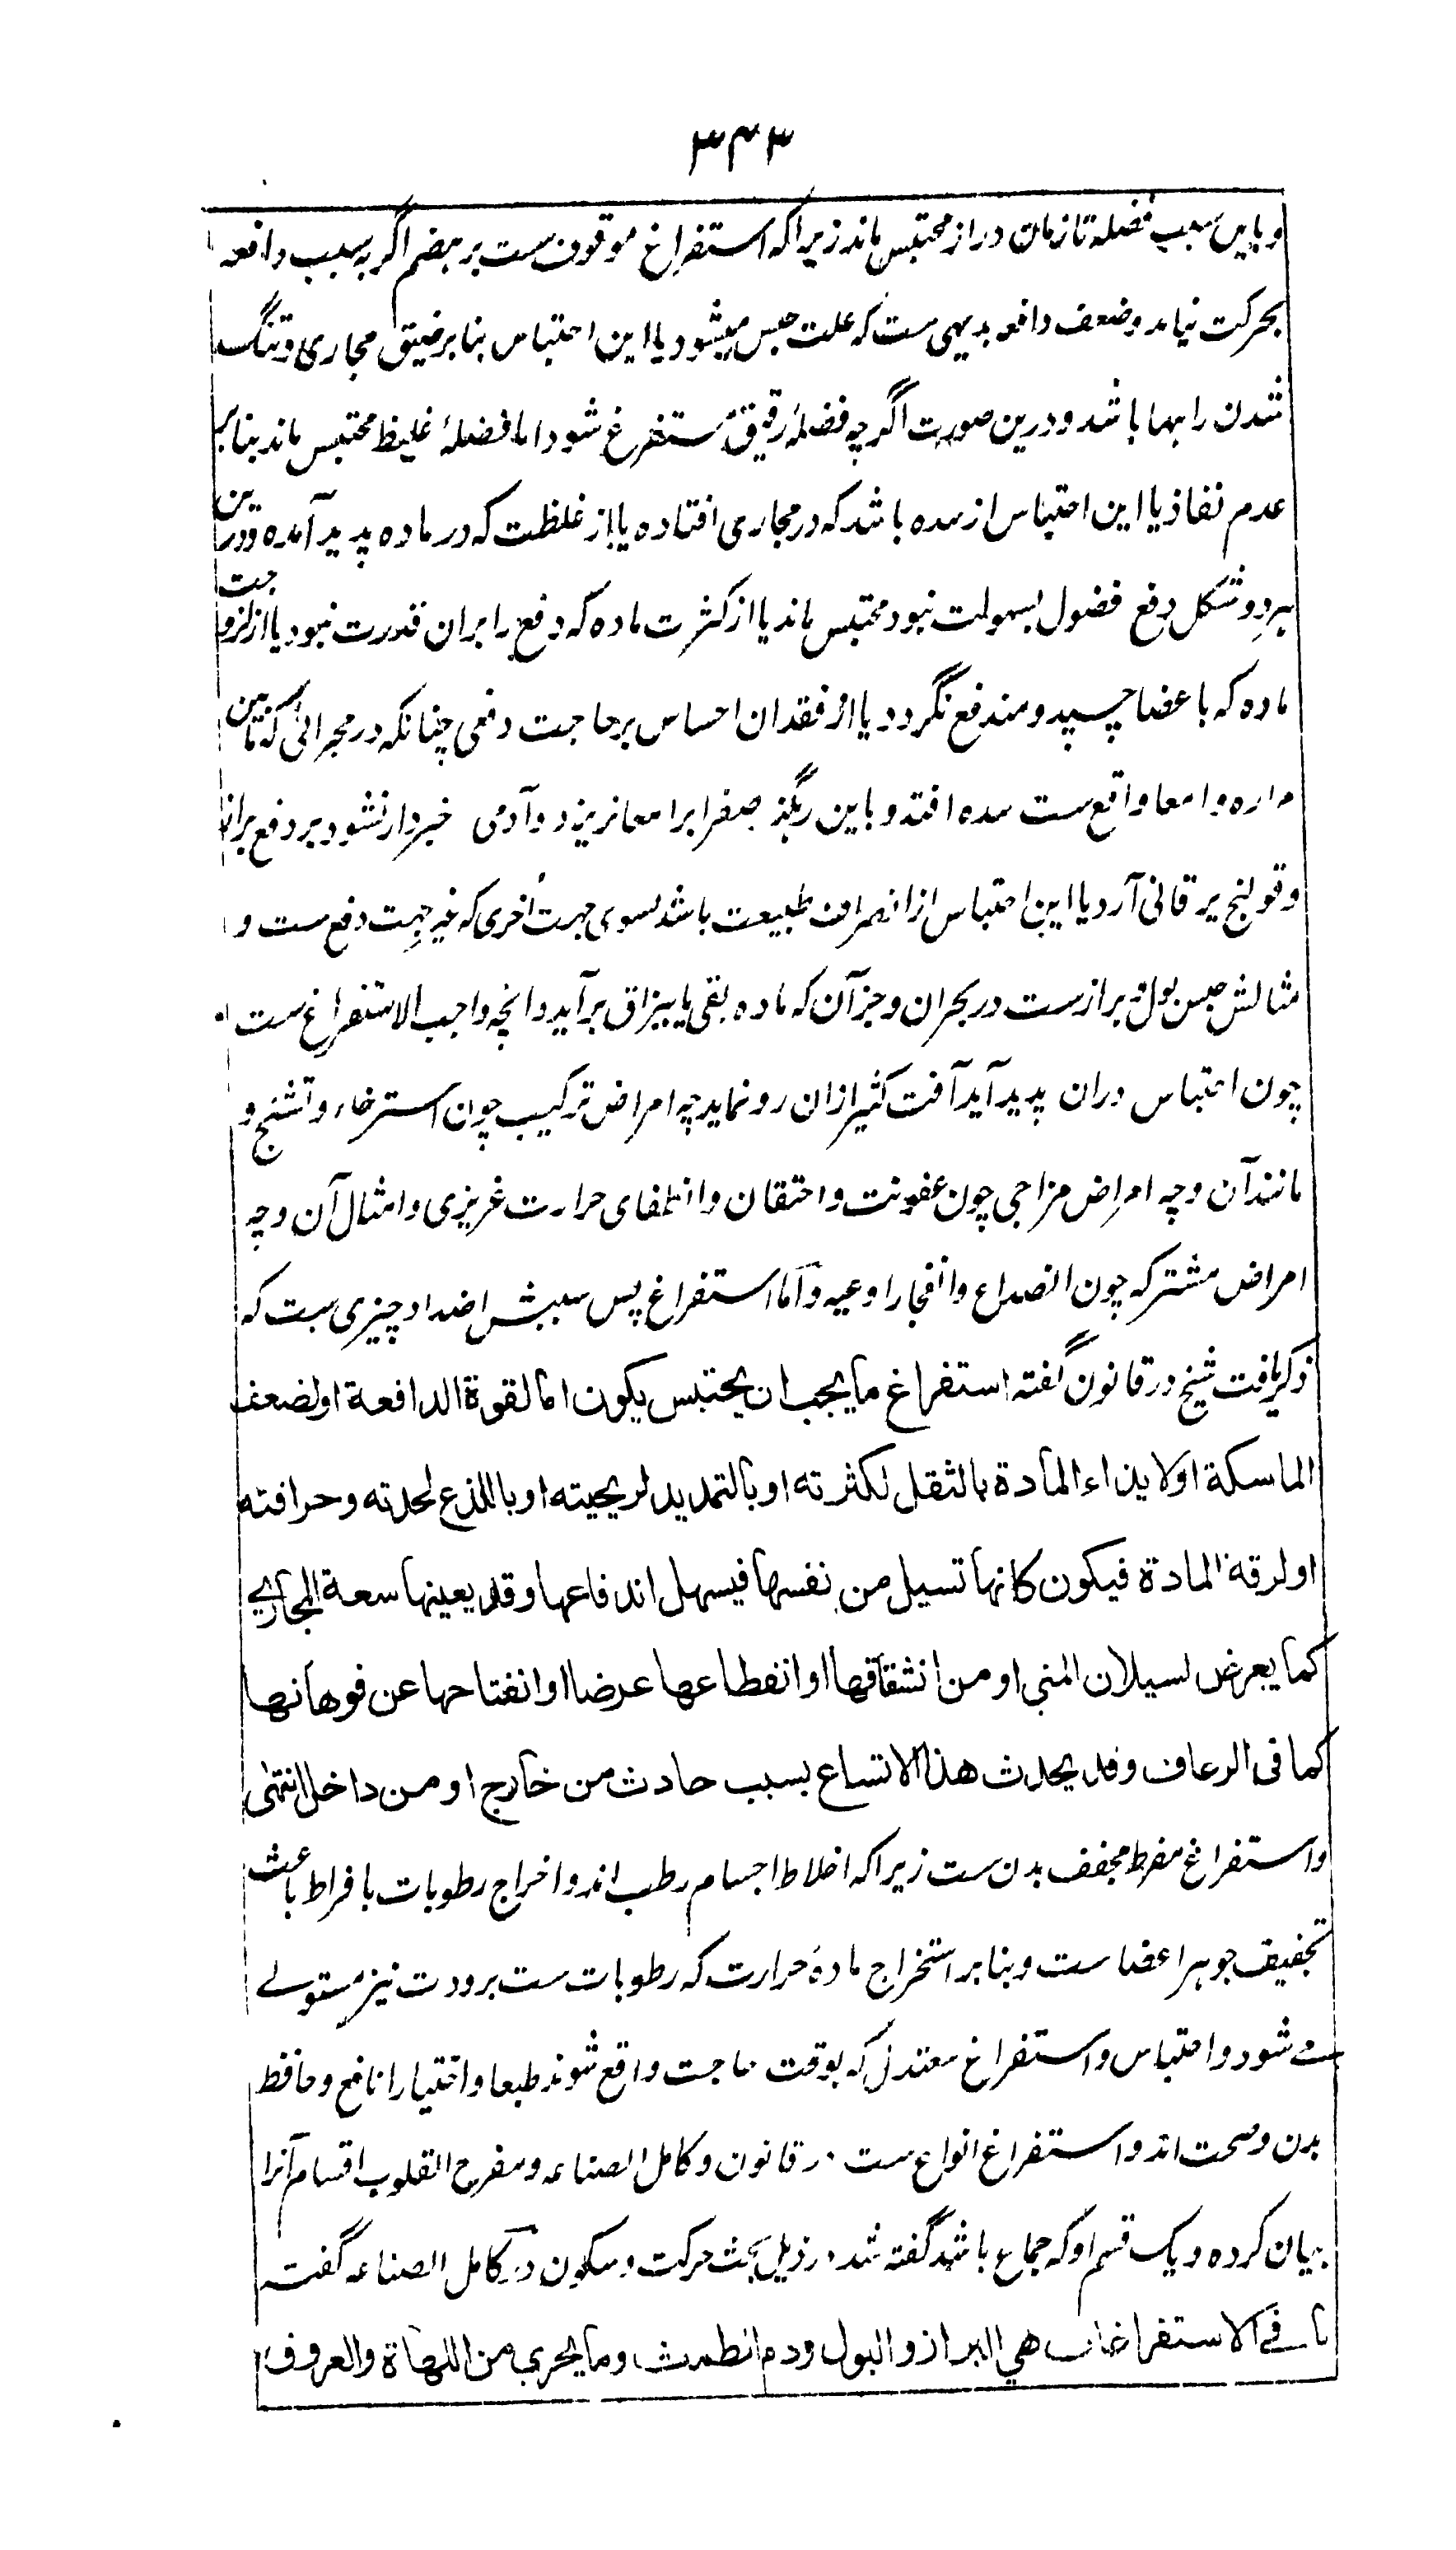 ۳۴۳
و باین سبب فضله تا زمان دراز محتبس ماند زیرا که استفراغ موقوف ست بر هضم اگر به سبب دافعه
بحرکت نیاید و ضعف دافعه بدیهی ست که علت حبس میشود یا این احتباس بنا بر ضیق مجاری و تنگ
شدن راهها باشد و درین صورت اگرچه فضلهٔ رقیق مستفرغ شود اما فضلهٔ غلیظ محتبس ماند بنا بر
عدم نفاذ یا این احتباس از سده باشد که در مجاری افتاده یا از غلظت که در ماده پدید آمده و درین
هر دو شکل دفع فضول بسهولت نبود محتبس ماند یا از کثرت ماده که دفع را بران قدرت نبود یا از لزوجت
ماده که باعضا چسپیده و مندفع نگردد یا از فقدان احساس بر حاجت دفعی چنانکه در مجرائی که مابین
مراره و امعا واقع ست سده افتد و باین رهگذر صفرا برا معا نریزد و آدمی خبردار نشود بر دفع براز
و قولنج یرقانی آرد یا این احتباس از انصراف طبیعت باشد بسوی جهت اُخری که غیر جهتِ دفع ست و
مثالش حبس بول و براز ست در بحران و جز آن که ماده بقی یا ببزاق برآید و انچه واجب الاستفراغ ست
چون احتباس دران پدید آید آفت کثیر ازان رو نماید چه امراض ترکیب چون استرخاء و تشنج و
مانند آن و چه امراض مزاجی چون عفونت و احتقان و انطفای حرارت غریزی و امثال آن و چه
امراض مشترکه چون انصداع و انفجار اوعیه و اما استفراغ پس سببش اضداد چیزی ست که
ذکر یافت شیخ در قانون گفته استفراغ ما یجب ان یحتبس یکون اما لقوة الدافعة او لضعف
الماسکة او لایذاء المادة بالثقل لکثرته او بالتمدید لریحیته او باللذع لحدته و حرافته
او لرقة المادة فیکون کانها تسیل من نفسها فیسهل اندفاعها و قد یعینها سعة المجاري
کما یعرض لسیلان المنی او من انشقاقها او انقطاعها عرضا او انفتاحها عن فوهاتها
کما فی الرعاف و قد یحدث هذا الاتساع بسبب حادث من خارج او من داخل انتهی
و استفراغ مفرط مجفف بدن ست زیرا که اخلاط اجسام رطب اند و اخراج رطوبات بافراط باعث
تجفیف جوهر اعضا ست و بنا بر استخراج مادهٔ حرارت که رطوبات ست برودت نیز مستولے
مے شود و احتباس و استفراغ معتدل که بوقت حاجت واقع شوند طبعا و اختیارا نافع و حافظ
بدن و صحت اند و استفراغ انواع ست در قانون و کامل الصناعه و مفرح القلوب اقسام آنرا
بیان کرده و یک قسم او که جماع باشد گفته شد در ذیل بحث حرکت و سکون در کامل الصناعه گفته
ما فے الاستفراغات هي البراز و البول و دم الطمث و ما یجري من اللهاة و العروف